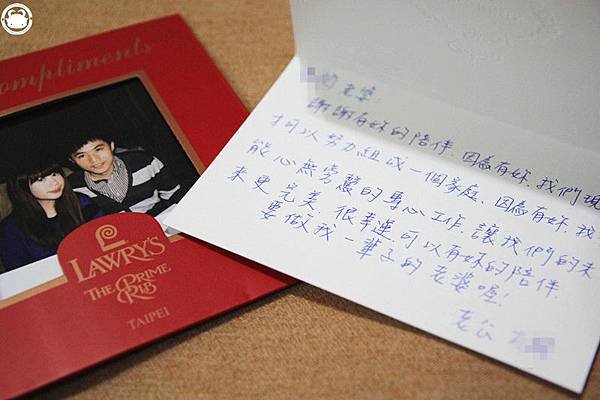 Compliments
LAWRY'S
THE PRIME
RIB
TAIPEI
的老婆:
謝謝有妳的陪伴、因為有妳、我們現
可以努力組成一個家庭、因為有妳、我
能心無旁鶩的專心工作、讓我們的未
來更完美、很幸運可以有妳的陪伴、
要做我一輩子的老婆喔!
老公